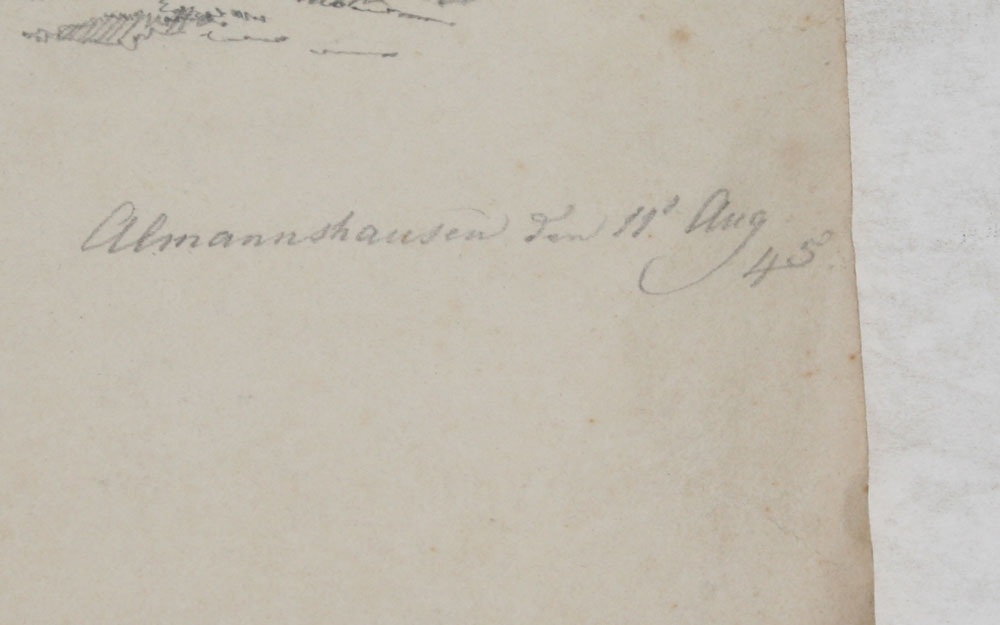 Almannshausen den 11t Aug
45.